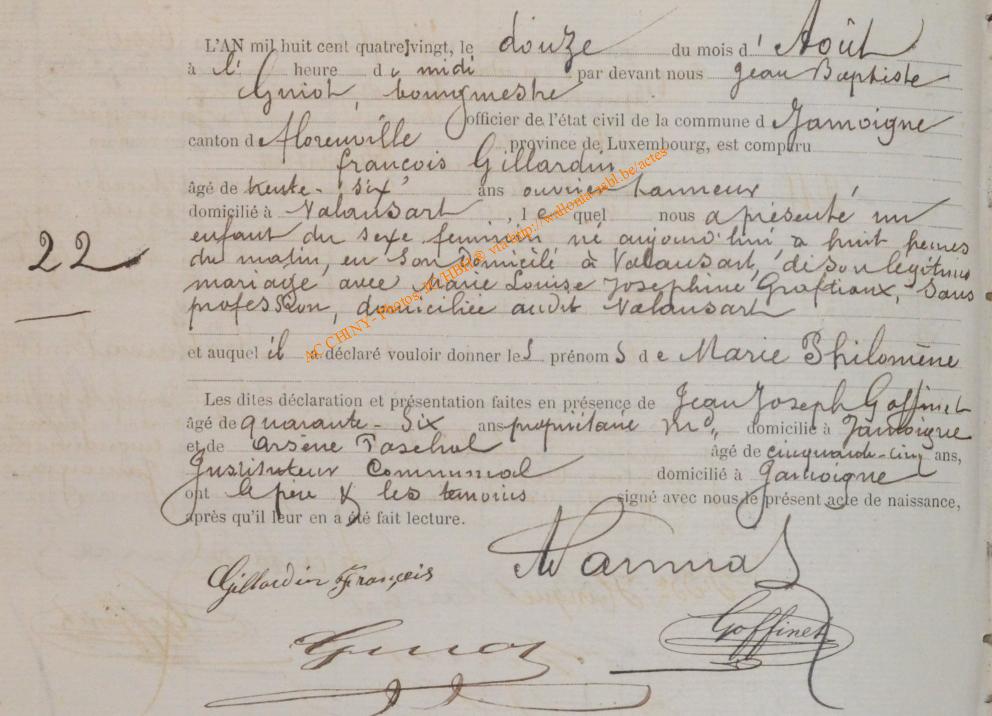 L'AN mil huit cent quatre-vingt, le douze du mois d' Août
à l' heure d e midi par devant nous Jean Baptiste
Guiot, bourgmestre
officier de l'état civil de la commune d Jamoigne
canton d e Florenville province de Luxembourg, est comparu
françois Gillardin
âgé de trente-six ans ouvrier tanneur
domicilié à Valansart, l e quel nous a présenté un
enfant du sexe feminin né aujourd'hui à huit heures
du matin, en son domicile à Valansart, de son légitime
mariage avec Marie Louise Josephine Graftiaux, sans
profession, domiciliée audit Valansart
22
et auquel il a déclaré vouloir donner les prénoms d e Marie Philomène
Les dites déclaration et présentation faites en présence de Jean Joseph Goffinet
âgé de quarante-six ans propriétaire md, domicilié à Jamoigne
et de Arsène Paschal âgé de cinquante-cinq ans,
Instituteur Communal domicilié à Jamoigne
ont le père & les temoins signé avec nous le présent acte de naissance,
après qu'il leur en a été fait lecture.
Gillardin François
Guiot
Goffinet
AC CHINY - Photos, via http://wallonia-asbl.be/actes